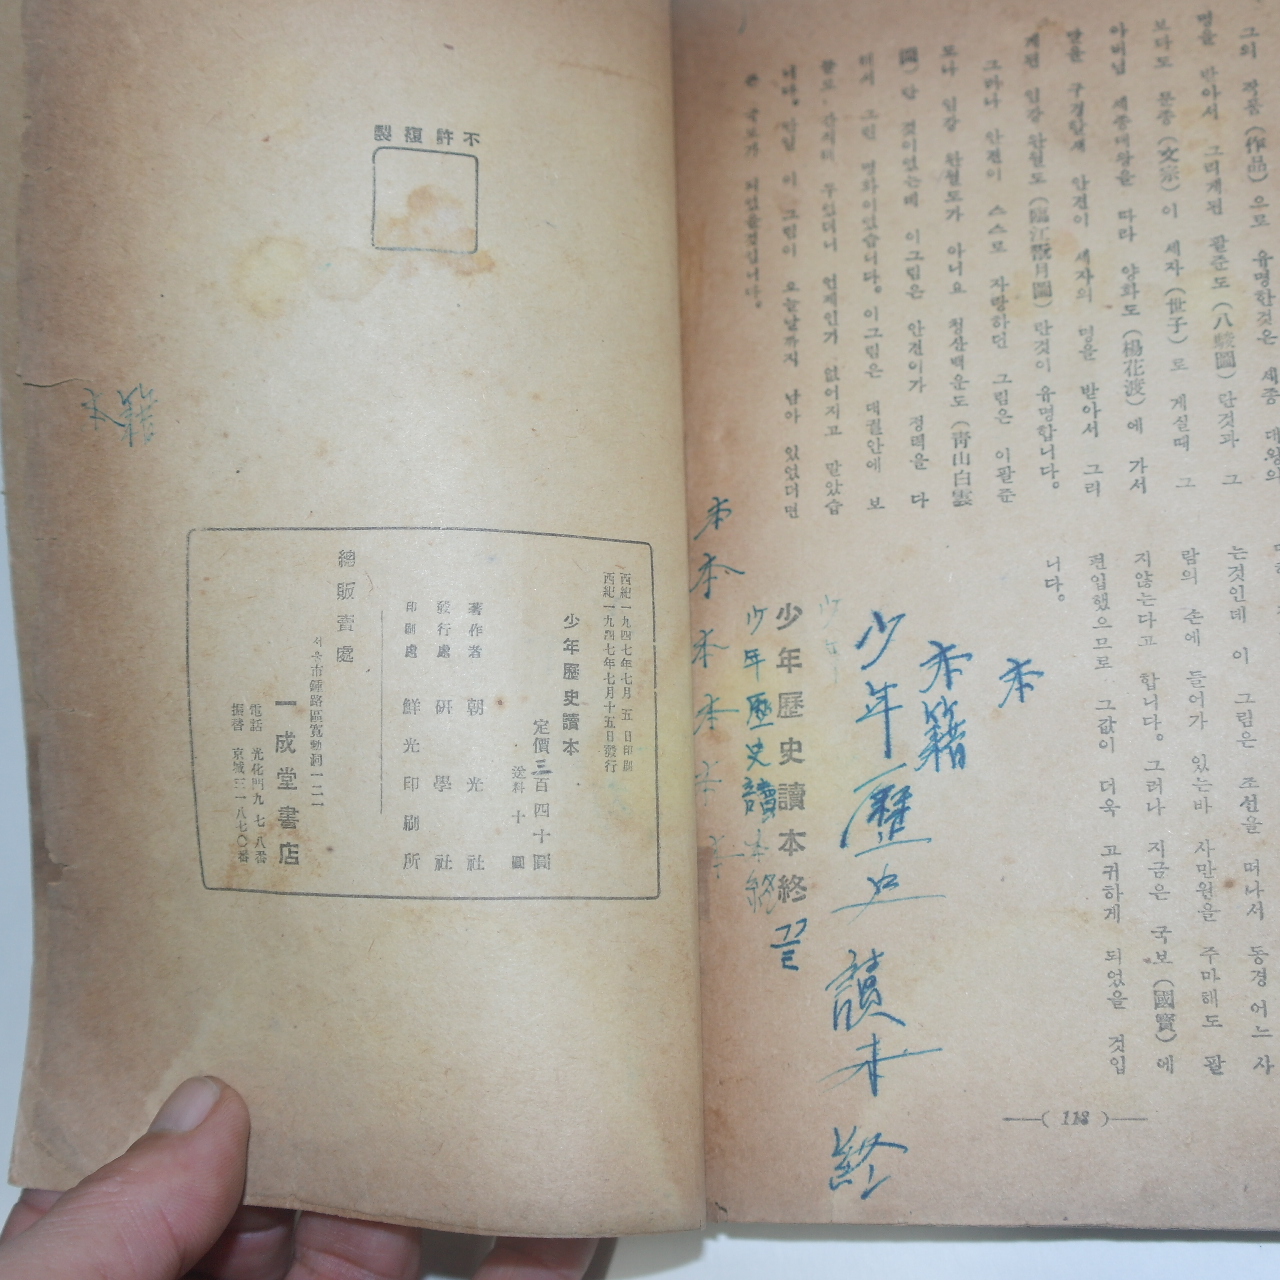 그의 작품(作品)으로 유명한것은 세종 대왕의
명을 받아서 그리게된 팔준도(八駿圖)란것과 그
보다도 문종(文宗)이 세자(世子)로 게실때 그
아버님 세종대왕을 따라 양화도(楊花渡)에 가서
달을 구경할새 안견이 세자의 명을 받아서 그리
게된 임강완월도(臨江翫月圖)란것이 유명합니다。
그러나 안견이 스스로 자랑하던 그림은 이팔준
도나 임강 완월도가 아니요 청산백운도(靑山白雲
圖)란 것이었는데 이그림은 안견이가 정력을 다
해서 그린 명화이었습니다。이그림은 대궐안에 보
물로 간직해 두었더니 언제인가 없어지고 말았습
니다。만일 이 그림이 오늘날까지 남아 있었더면
큰 국보가 되었을것입니다。
는것인데 이 그림은 조선을 떠나서 동경어느 사
람의 손에 들어가 있는바 사만원을 주마해도 팔
지않는다고 합니다。그러나 지금은 국보(國寶)에
편입했으므로 그값이 더욱 고귀하게 되었을 것입
니다。
本
本籍
少年歷史讀本終
少年
少年歷史讀本終 끝
少年歷史讀本終
本 本 本 本 本 本
——( 118 )——
不許複製
西紀一九四七年七月 五 日印刷
西紀一九四七年七月十五日發行
少年歷史讀本
定價 三百四十圓
送料 十 圓
著作者 朝光社
發行處 硏學社
印刷處 鮮光印刷所
總販賣處
서울市鍾路區寬勳洞一二一
一成堂書店
電話 光化門九七八番
振替 京城三一八七〇番